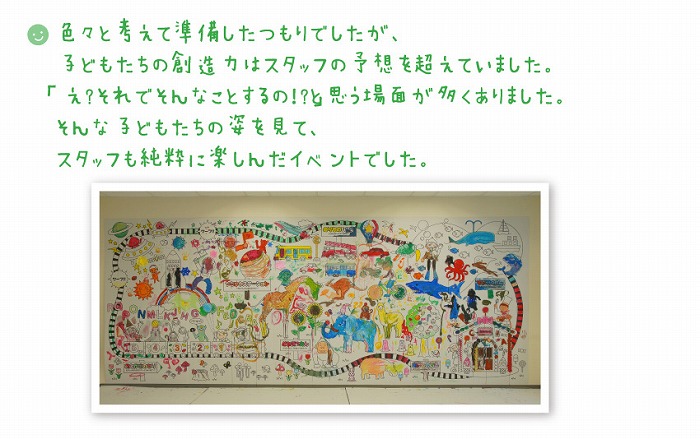 色々と考えて準備したつもりでしたが、
子どもたちの創造力はスタッフの予想を超えていました。
「え?それでそんなことするの!?」と思う場面が多くありました。
そんな子どもたちの姿を見て、
スタッフも純粋に楽しんだイベントでした。